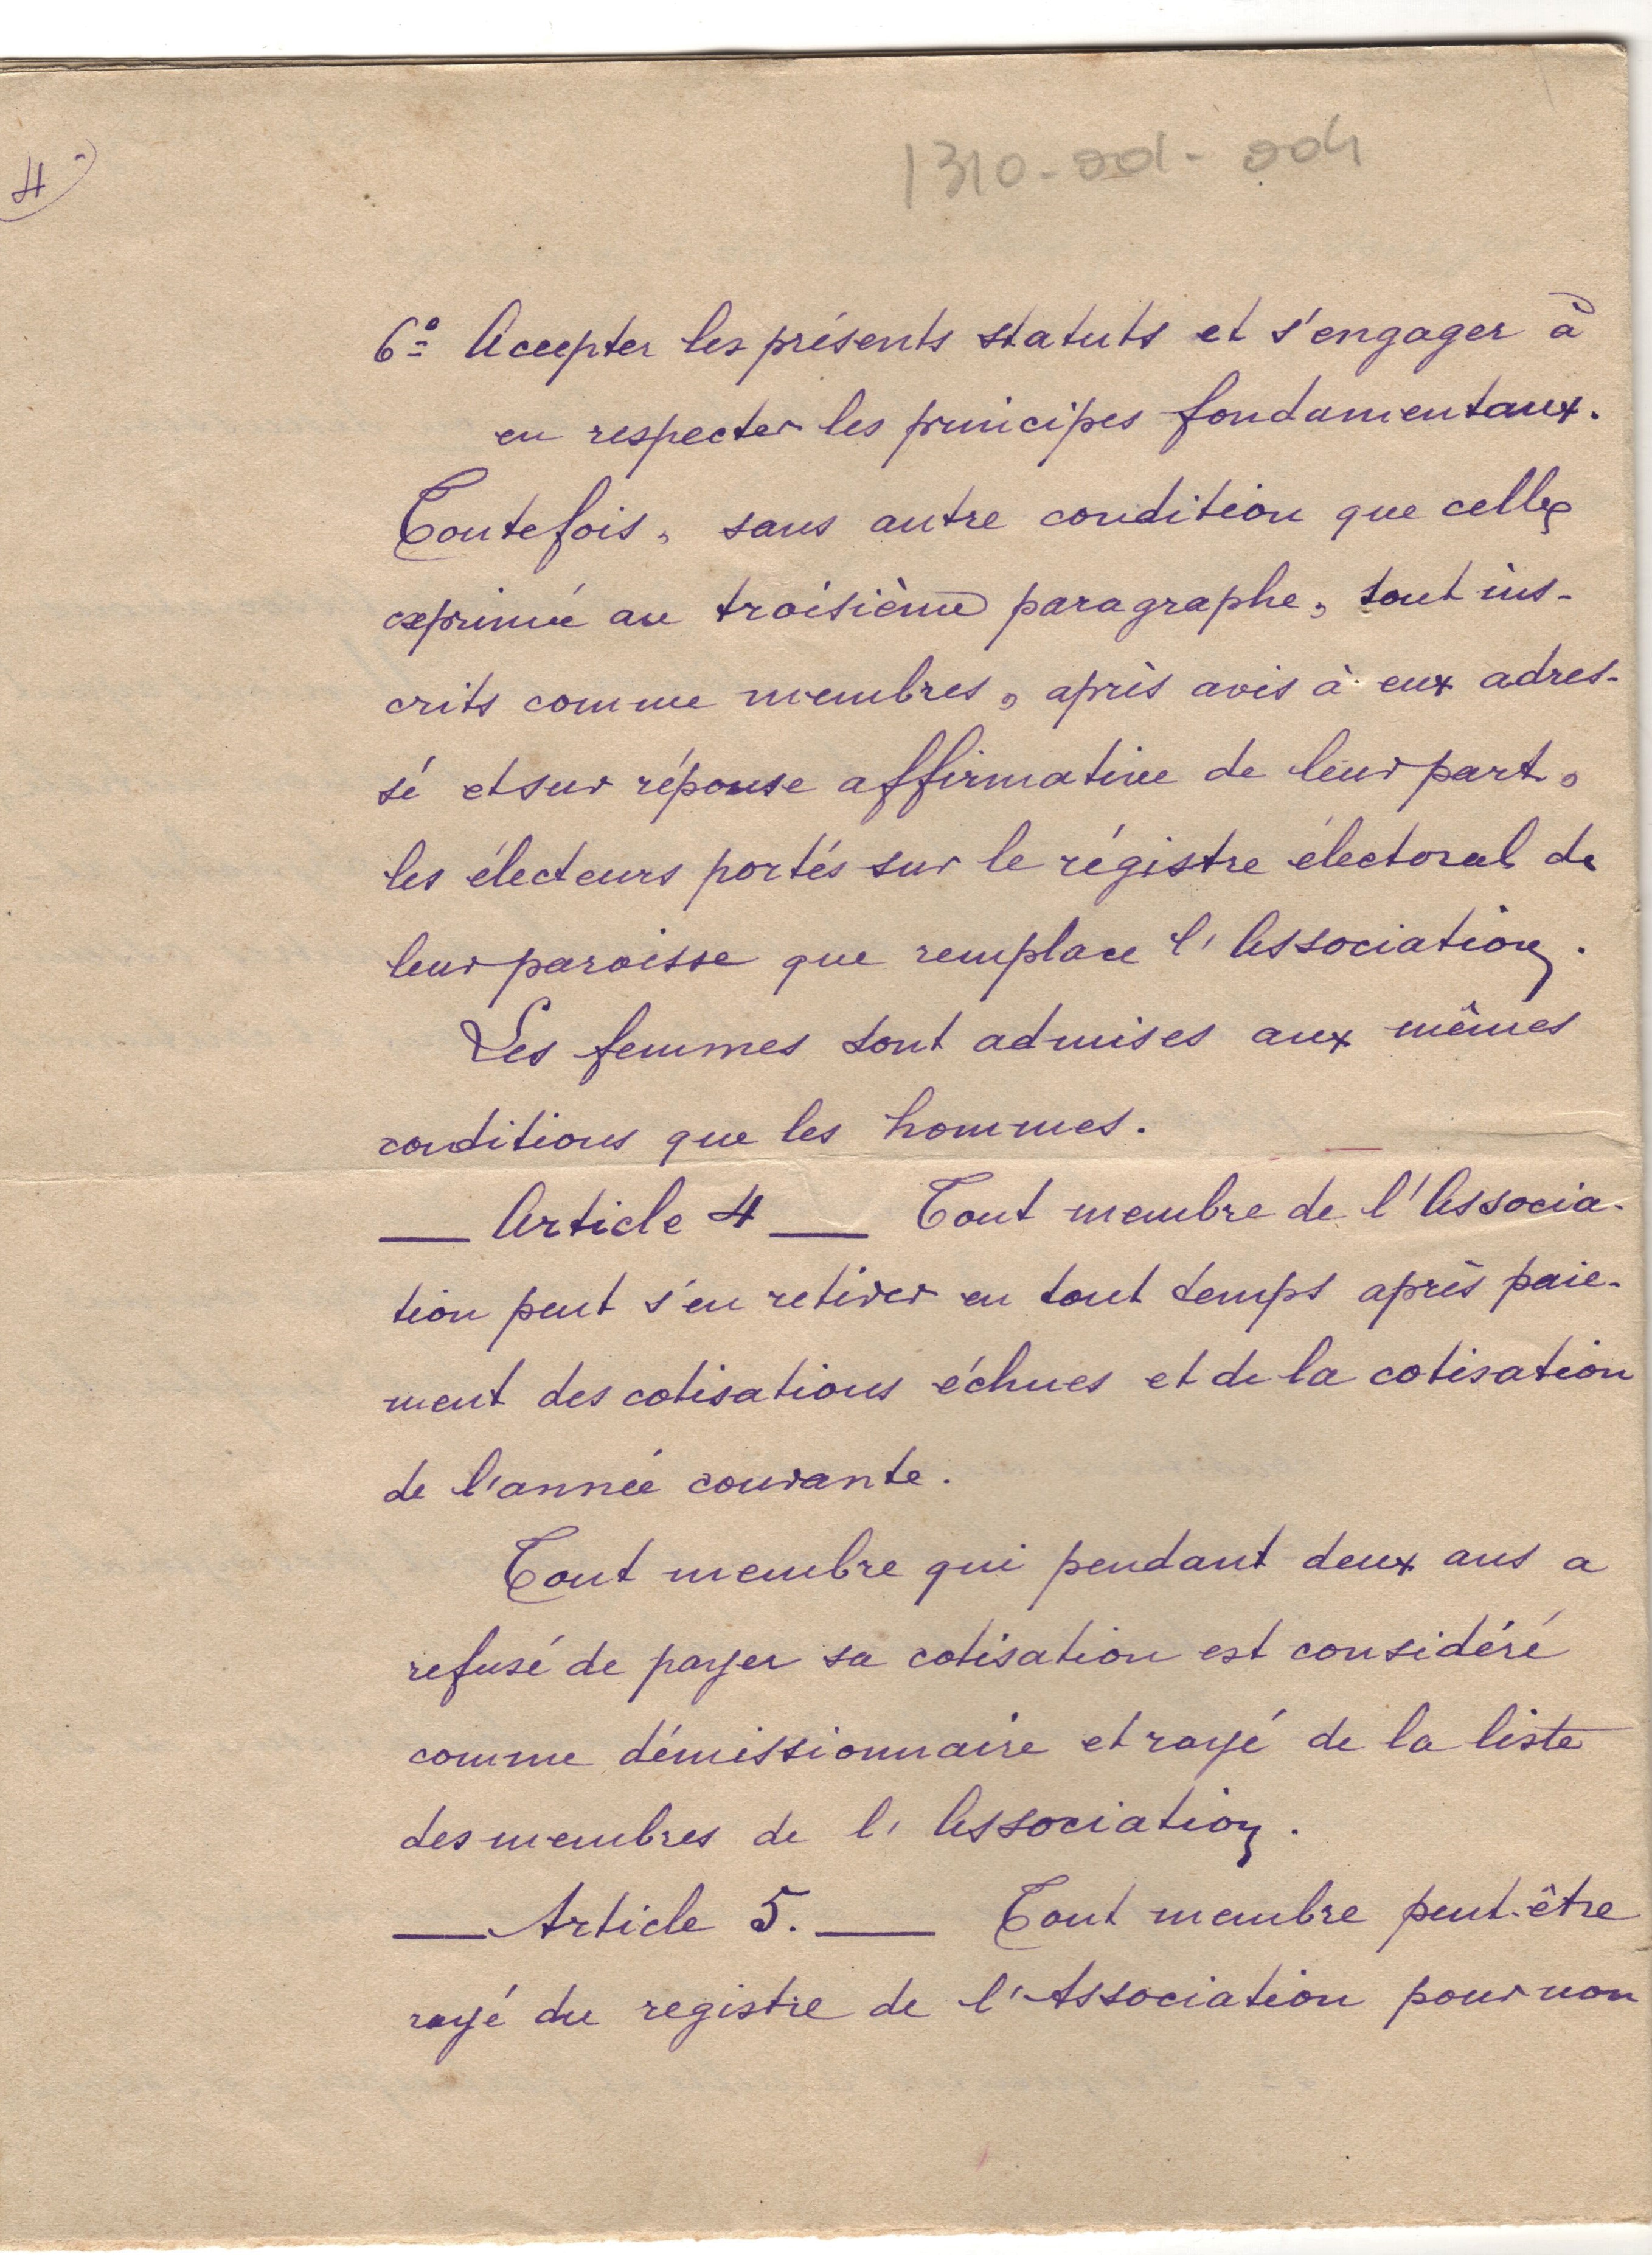 1310-001-004
4
6º Accepter les présents statuts et s'engager à
en respecter les principes fondamentaux.
Toutefois, sans autre condition que celle
exprimée au troisième paragraphe, sont ins-
crits comme membres, après avis à eux adres-
sé et sur réponse affirmative de leur part,
les électeurs portés sur le régistre électoral de
leur paroisse que remplace l'Association.
Les femmes sont admises aux mêmes
conditions que les hommes.
— Article 4 — Tout membre de l'Associa-
tion peut s'en retirer en tout temps après paie-
ment des cotisations échues et de la cotisation
de l'année courante.
Tout membre qui pendant deux ans a
refusé de payer sa cotisation est considéré
comme démissionnaire et rayé de la liste
des membres de l'Association.
— Article 5. — Tout membre peut-être
rayé du registre de l'Association pour non